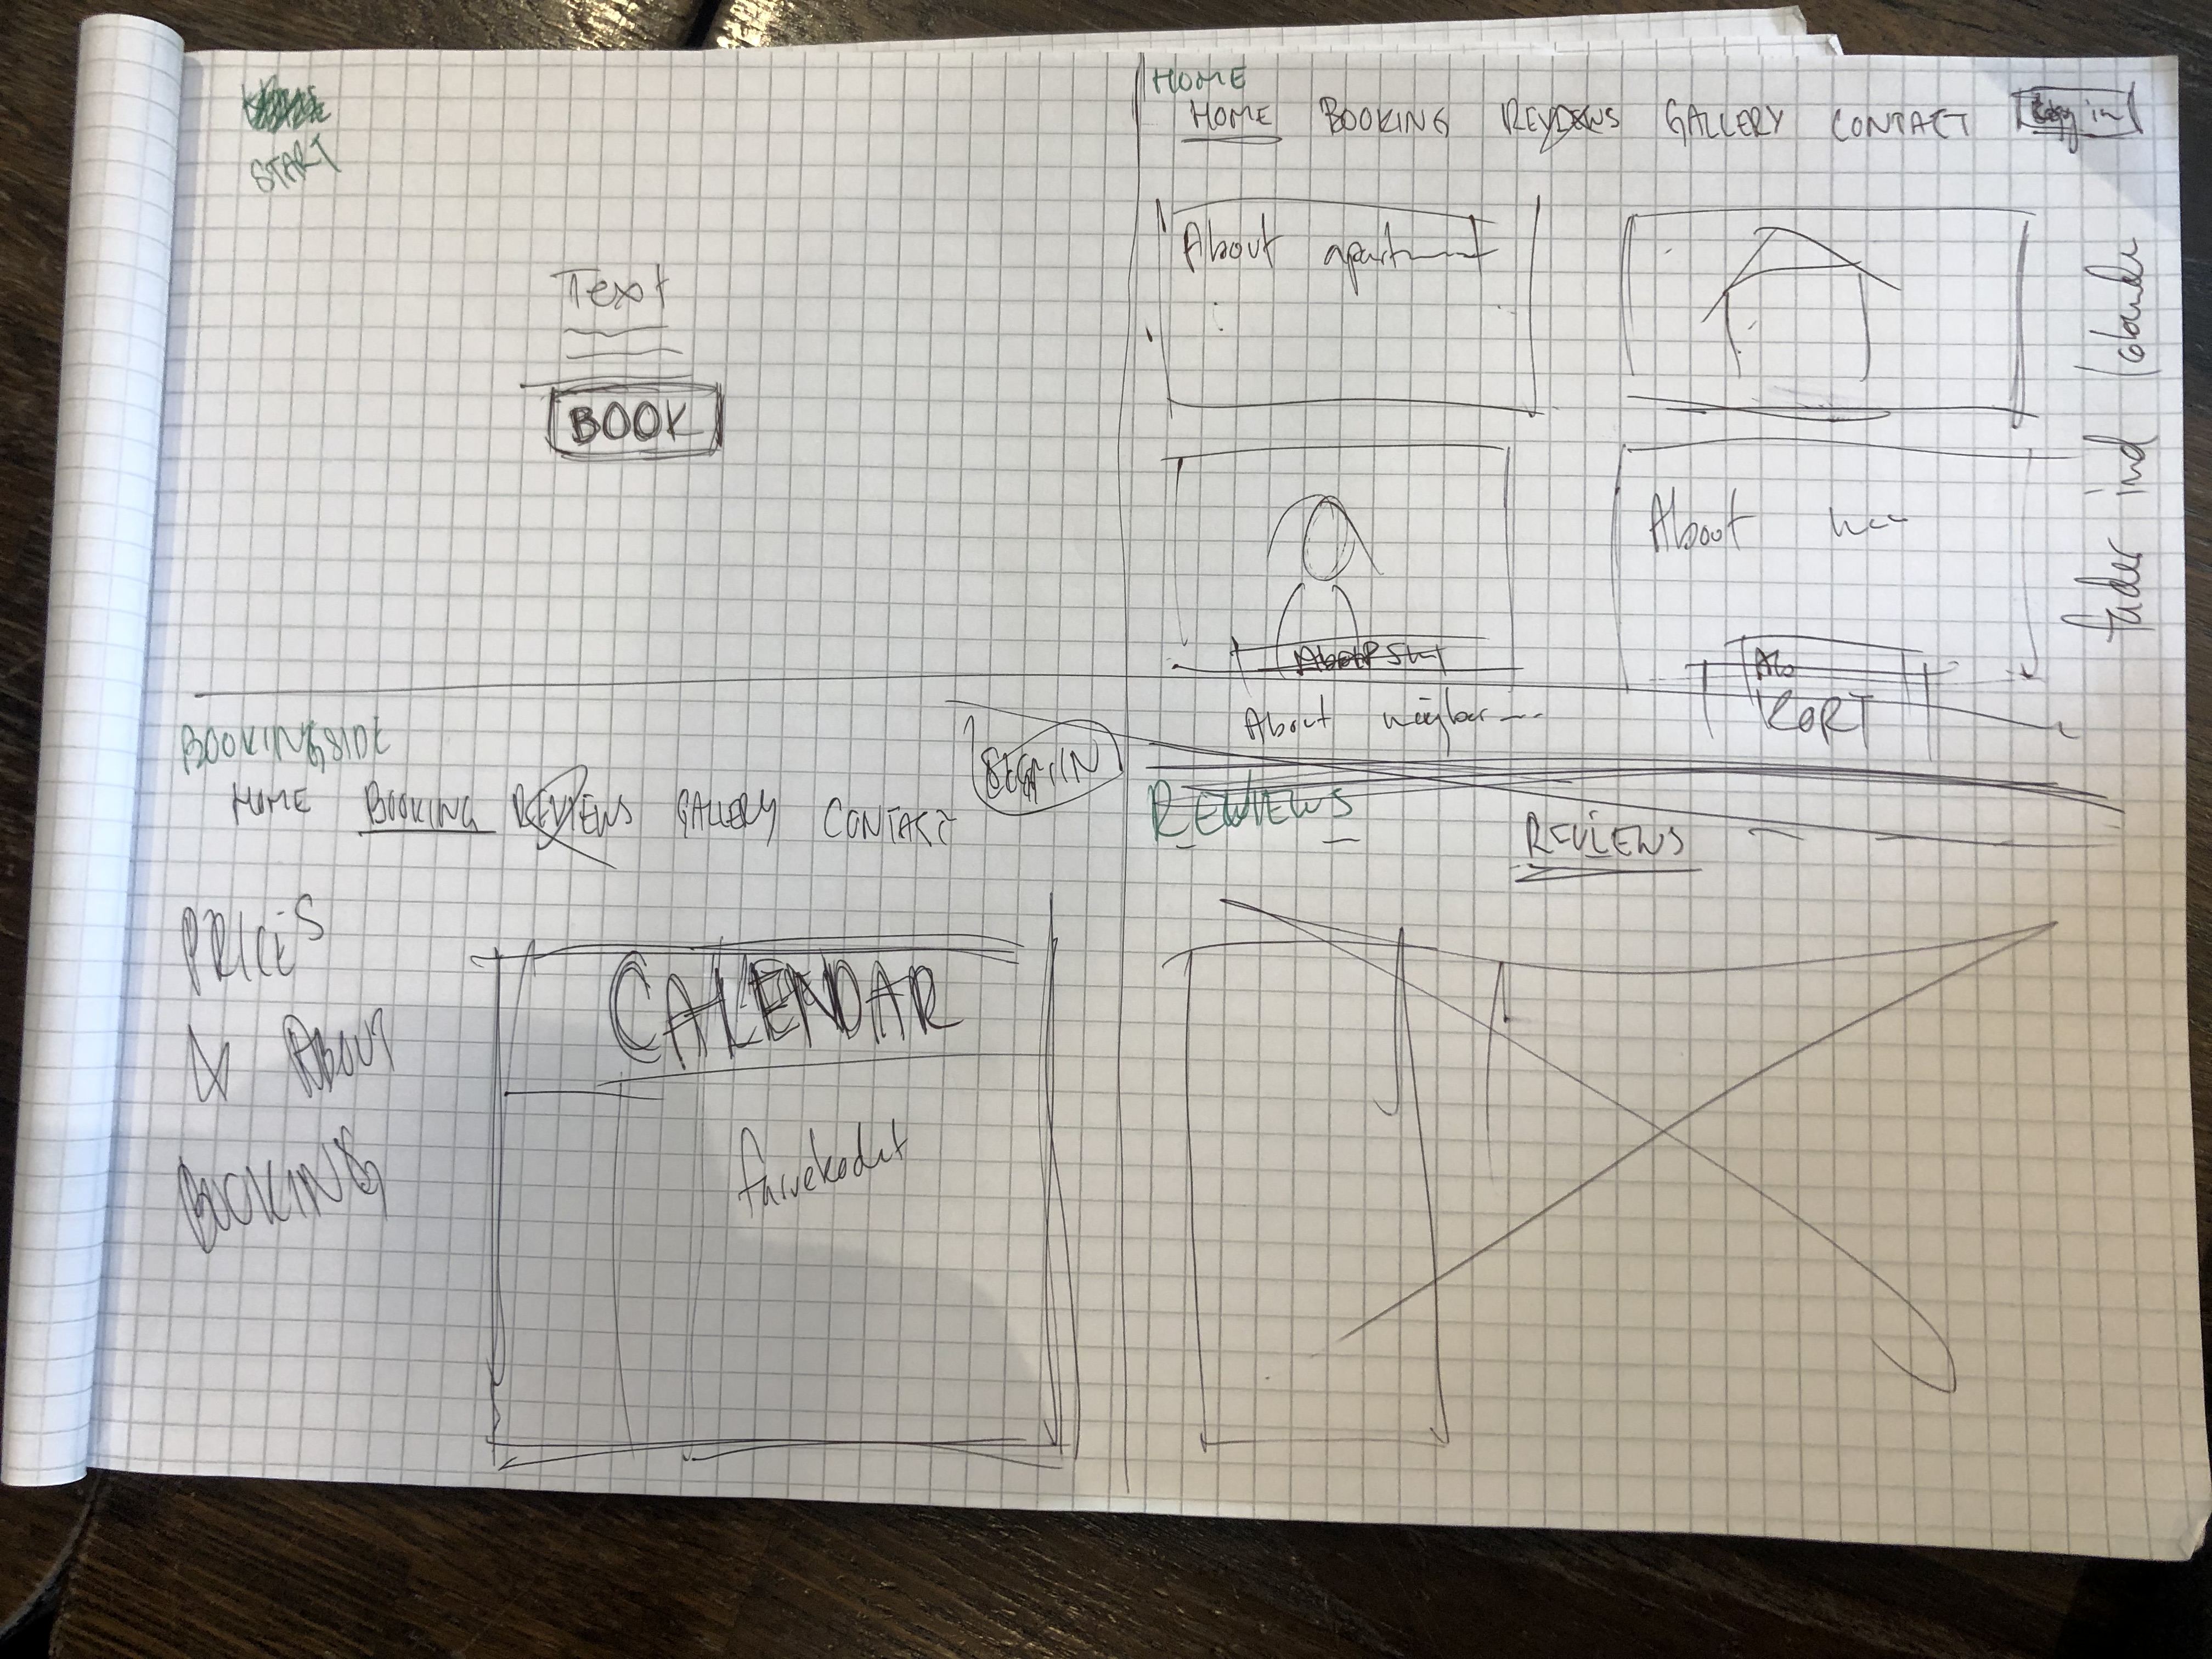 START
Text
BOOK
HOME
HOME BOOKING REVIEWS GALLERY CONTACT Log in
About apartment
About
About
KORT
fader ind
BOOKINGSIDE
HOME BOOKING REVIEWS GALLERY CONTACT
PRICES
& ABOUT
BOOKING
CALENDAR
farvekodet
REVIEWS
REVIEWS